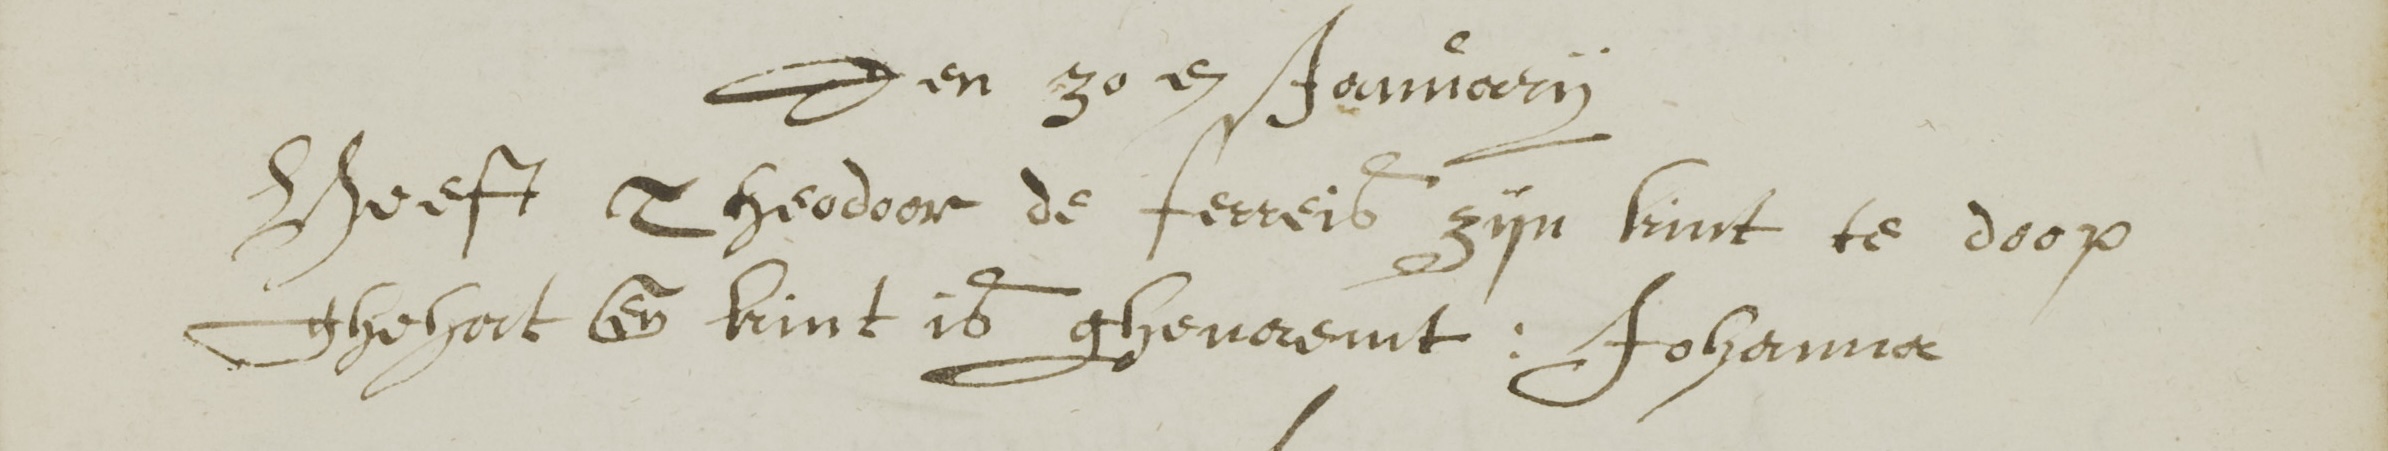 Den 30 en Januarij
Heeft Theodoor de ferreis zijn kint te doop
ghehat en kint is ghenaemt : Johanna